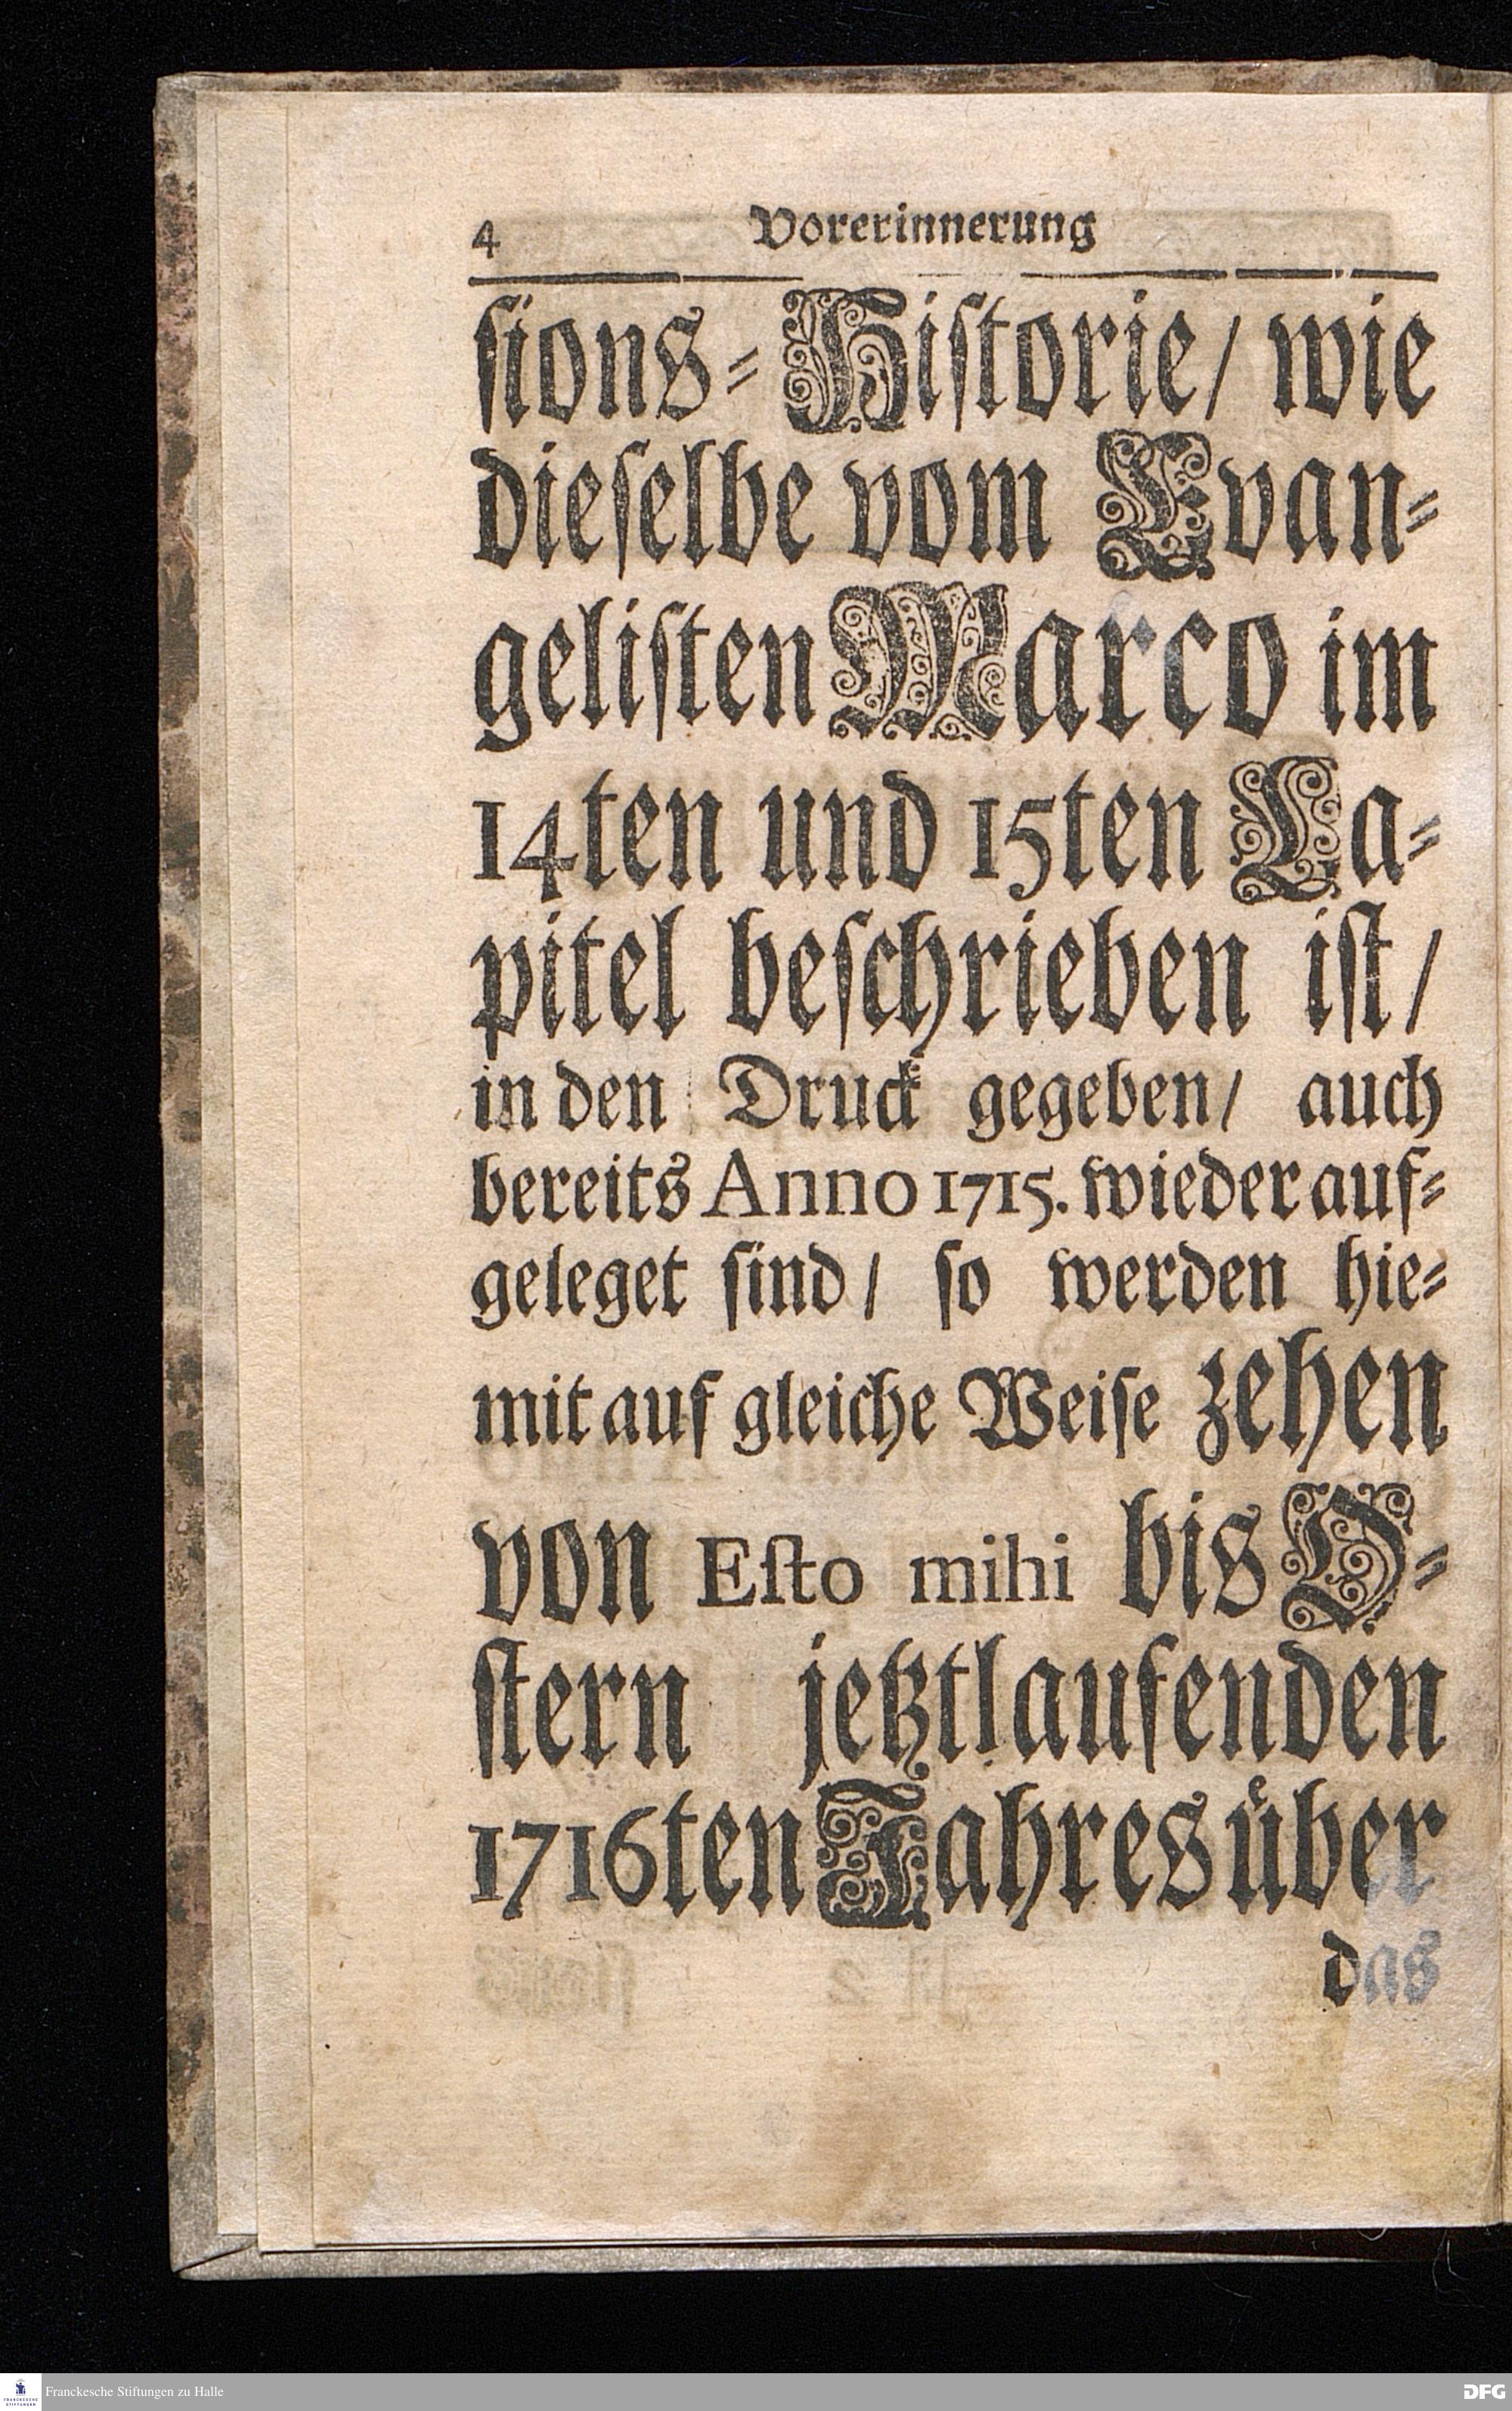 4 Vorerinnerung
ſions⸗Hiſtorie/ wie
dieſelbe vom Evan⸗
geliſten Marco im
14ten und 15ten Ca⸗
pitel beſchrieben iſt/
in den Druck gegeben/ auch
bereits Anno 1715. wieder auf⸗
geleget ſind/ ſo werden hie⸗
mit auf gleiche Weiſe zehen
von Eſto mihi bis O⸗
ſtern jetztlaufenden
1716ten Jahres uͤber
das
Franckesche Stiftungen zu Halle
DFG